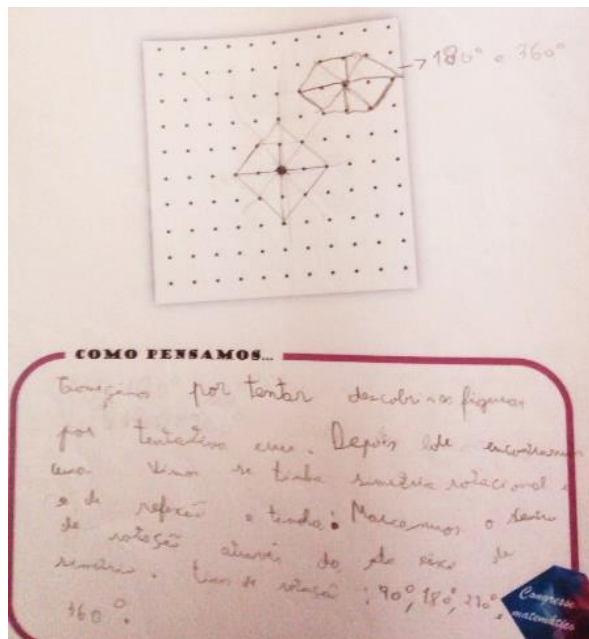 → 180° e 360°
COMO PENSAMOS...
Começamos por tentar descobrir as figuras
por tentativa erro. Depois de encontrarmos
uma vimos se tinha simetria rotacional e
e de reflexão e tinha. Marcamos o
de rotação através do de
simetria. de rotação: 90°, 180°, 270° e
360°.
Congresso
matemático